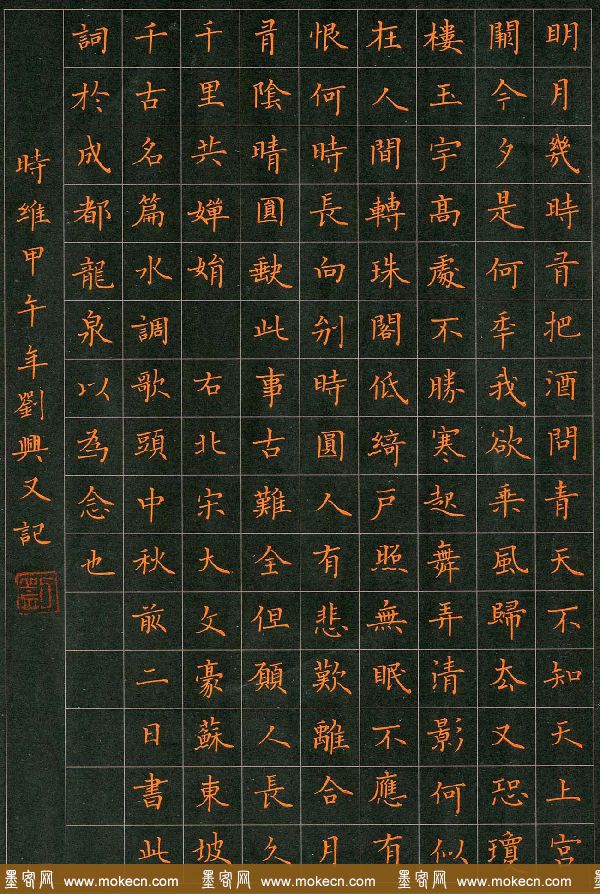 明月幾時有把酒問青天不知天上宮
闕今夕是何年我欲乘風歸去又恐瓊
樓玉宇高處不勝寒起舞弄清影何似
在人間轉珠閣低綺戶照無眠不應有
恨何時長向別時圓人有悲歡離合月
有陰晴圓缺此事古難全但願人長久
千里共嬋娟 右北宋大文豪蘇東坡
千古名篇水調歌頭中秋前二日書此
詞於成都龍泉以為念也
時維甲午年劉興又記
劉
墨客网 www.mokecn.com 墨客网 www.mokecn.com 墨客网 www.mokecn.com 墨客网 www.mokecn.com